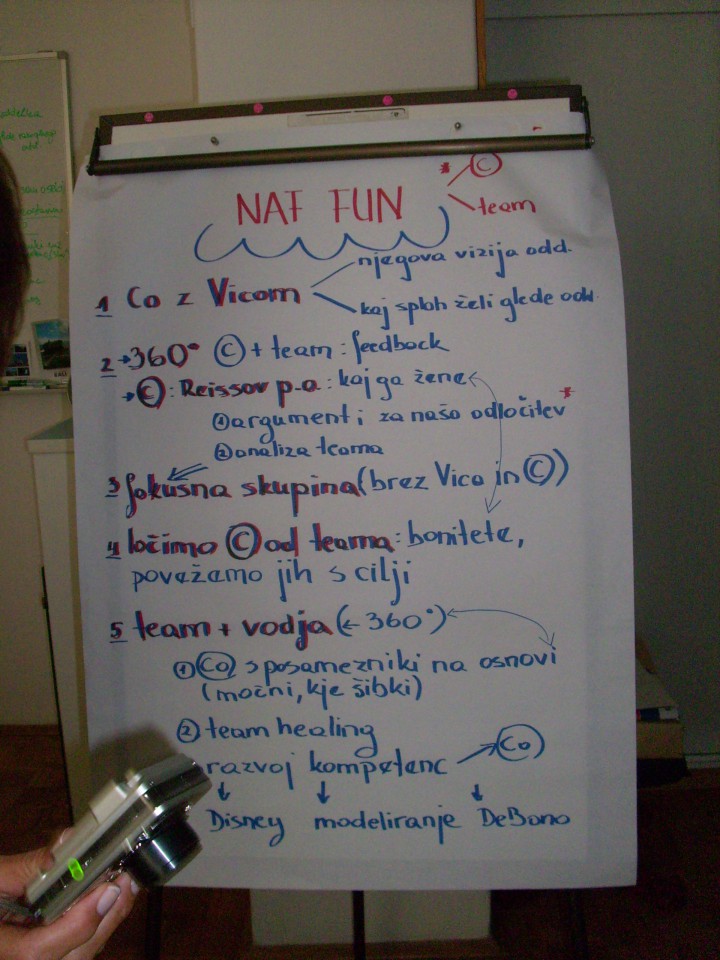 NAF FUN
* Ⓒ
team
1 Co z Vicom
njegova vizija odd.
kaj sploh želi glede odd.
2 →360° Ⓒ + team : feedback
→Ⓒ: Reissov p-a : kaj ga žene
① argumenti za našo odločitev *
② analiza teama
3 fokusna skupina (brez Vica in Ⓒ)
4 ločimo Ⓒ od teama : bonitete,
povežemo jih s cilji
5 team + vodja (← 360°)
① Co s posamezniki na osnovi
(močni, kje šibki)
② team healing
razvoj kompetenc → Co
↓ ↓ ↓
Disney modeliranje DeBono